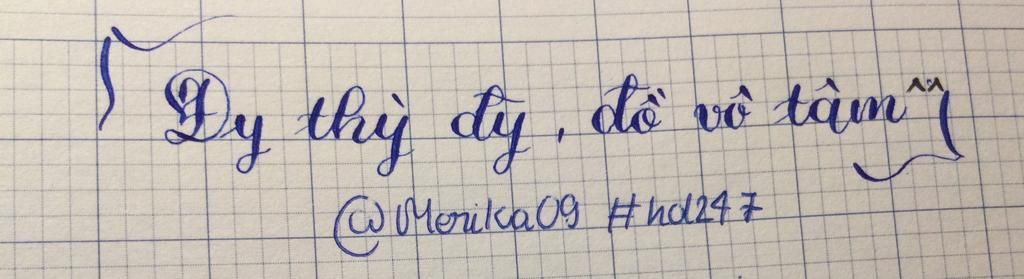 Đy thỳ đỳ, đồ vô tâm ^^
@Merika09 #hd247